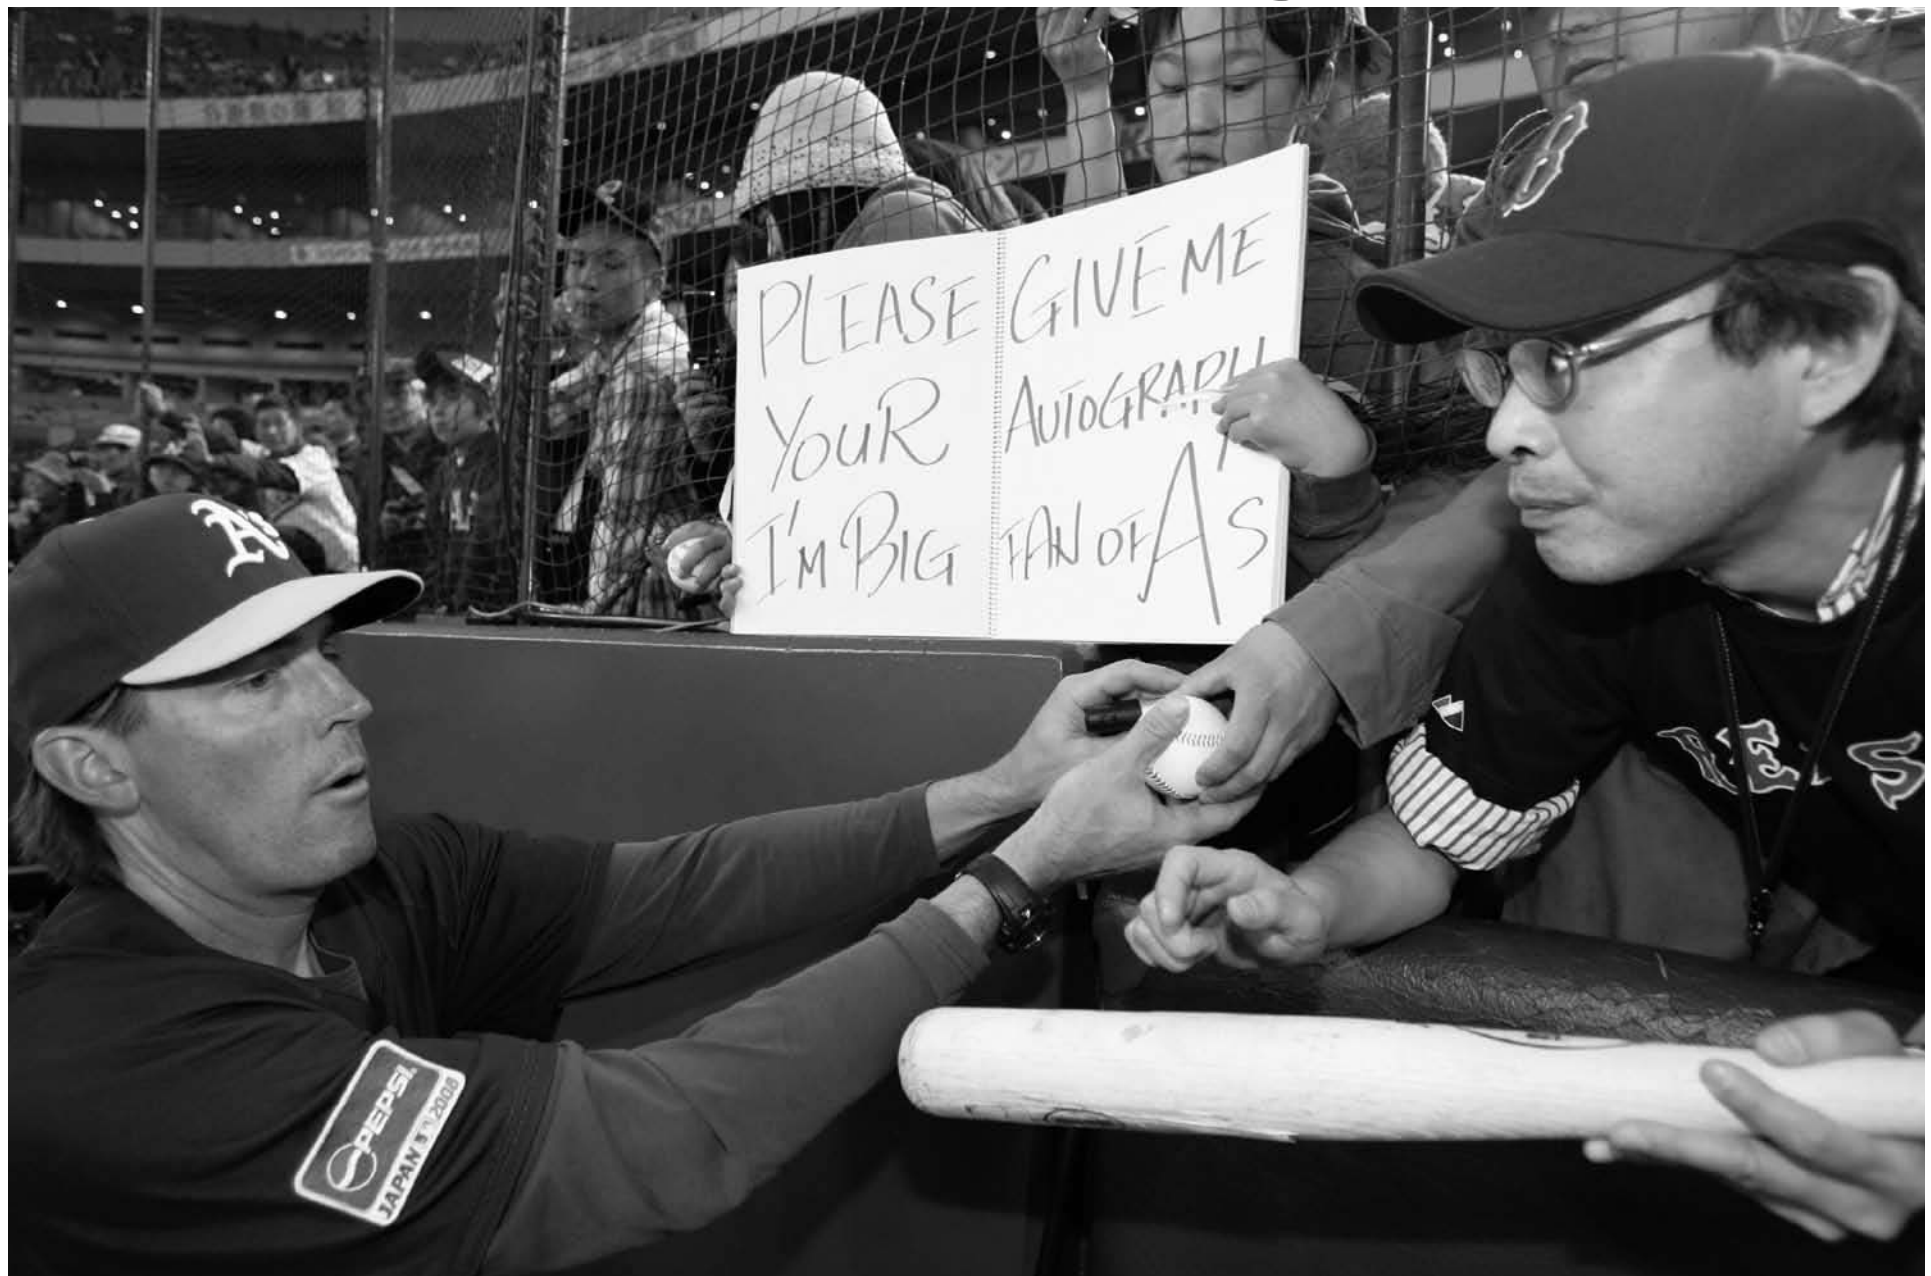 PLEASE GIVE ME
YOUR AUTOGRAPH
I'M BIG FAN OF A'S
A's
B
PEPSI
JAPAN 2008